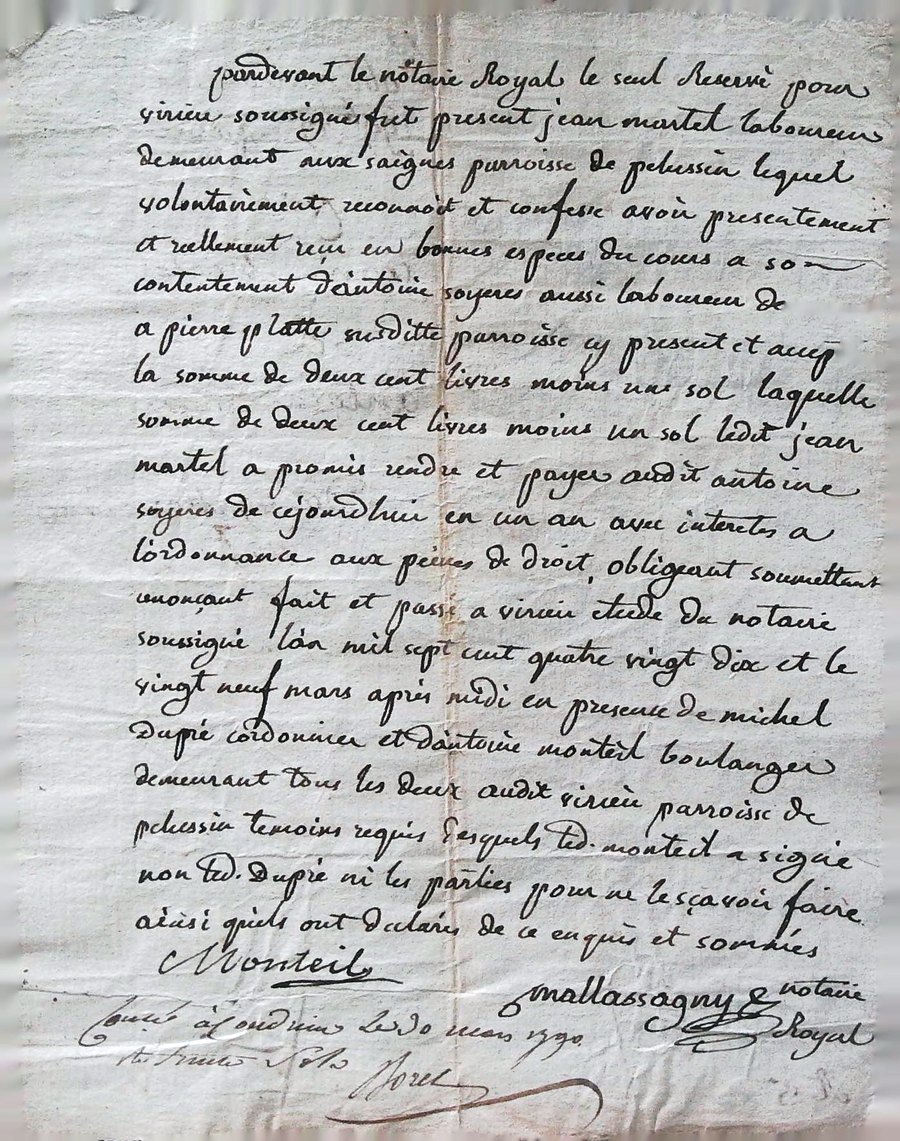 pardevant le notaire Royal le seul Reservé pour
virieu soussigné fut present jean martel laboureur
demeurant aux saignes parroisse de pelussin lequel
volontairement reconnoit et confesse avoir presentement
et réellement reçu en bonnes especes du cours a son
contentement d'antoine soyeres aussi laboureur de
a pierre platte susditte parroisse cy present et accep
la somme de deux cent livres moins une sol laquelle
somme de deux cent livres moins un sol ledit jean
martel a promis rendre et payer audit antoine
soyeres de cejourdhui en un an avec interets a
l'ordonnance aux peines de droit, obligeant soumettant
renonçant fait et passé a virieu etude du notaire
soussigné l'an mil sept cent quatre vingt dix et le
vingt neuf mars après midi en presence de michel
Dupré cordonnier et d'antoine monteil boulanger
demeurant tous les deux audit virieu parroisse de
pelussin temoins requis Lesquels led. monteil a signé
non led. Dupré ni les parties pour ne le sçavoir faire
ainsi qu'ils ont declaré de ce enquis et sommés
Monteil
mallassagny notaire
Royal
à Condrieu Le 30 mars 1790
sols